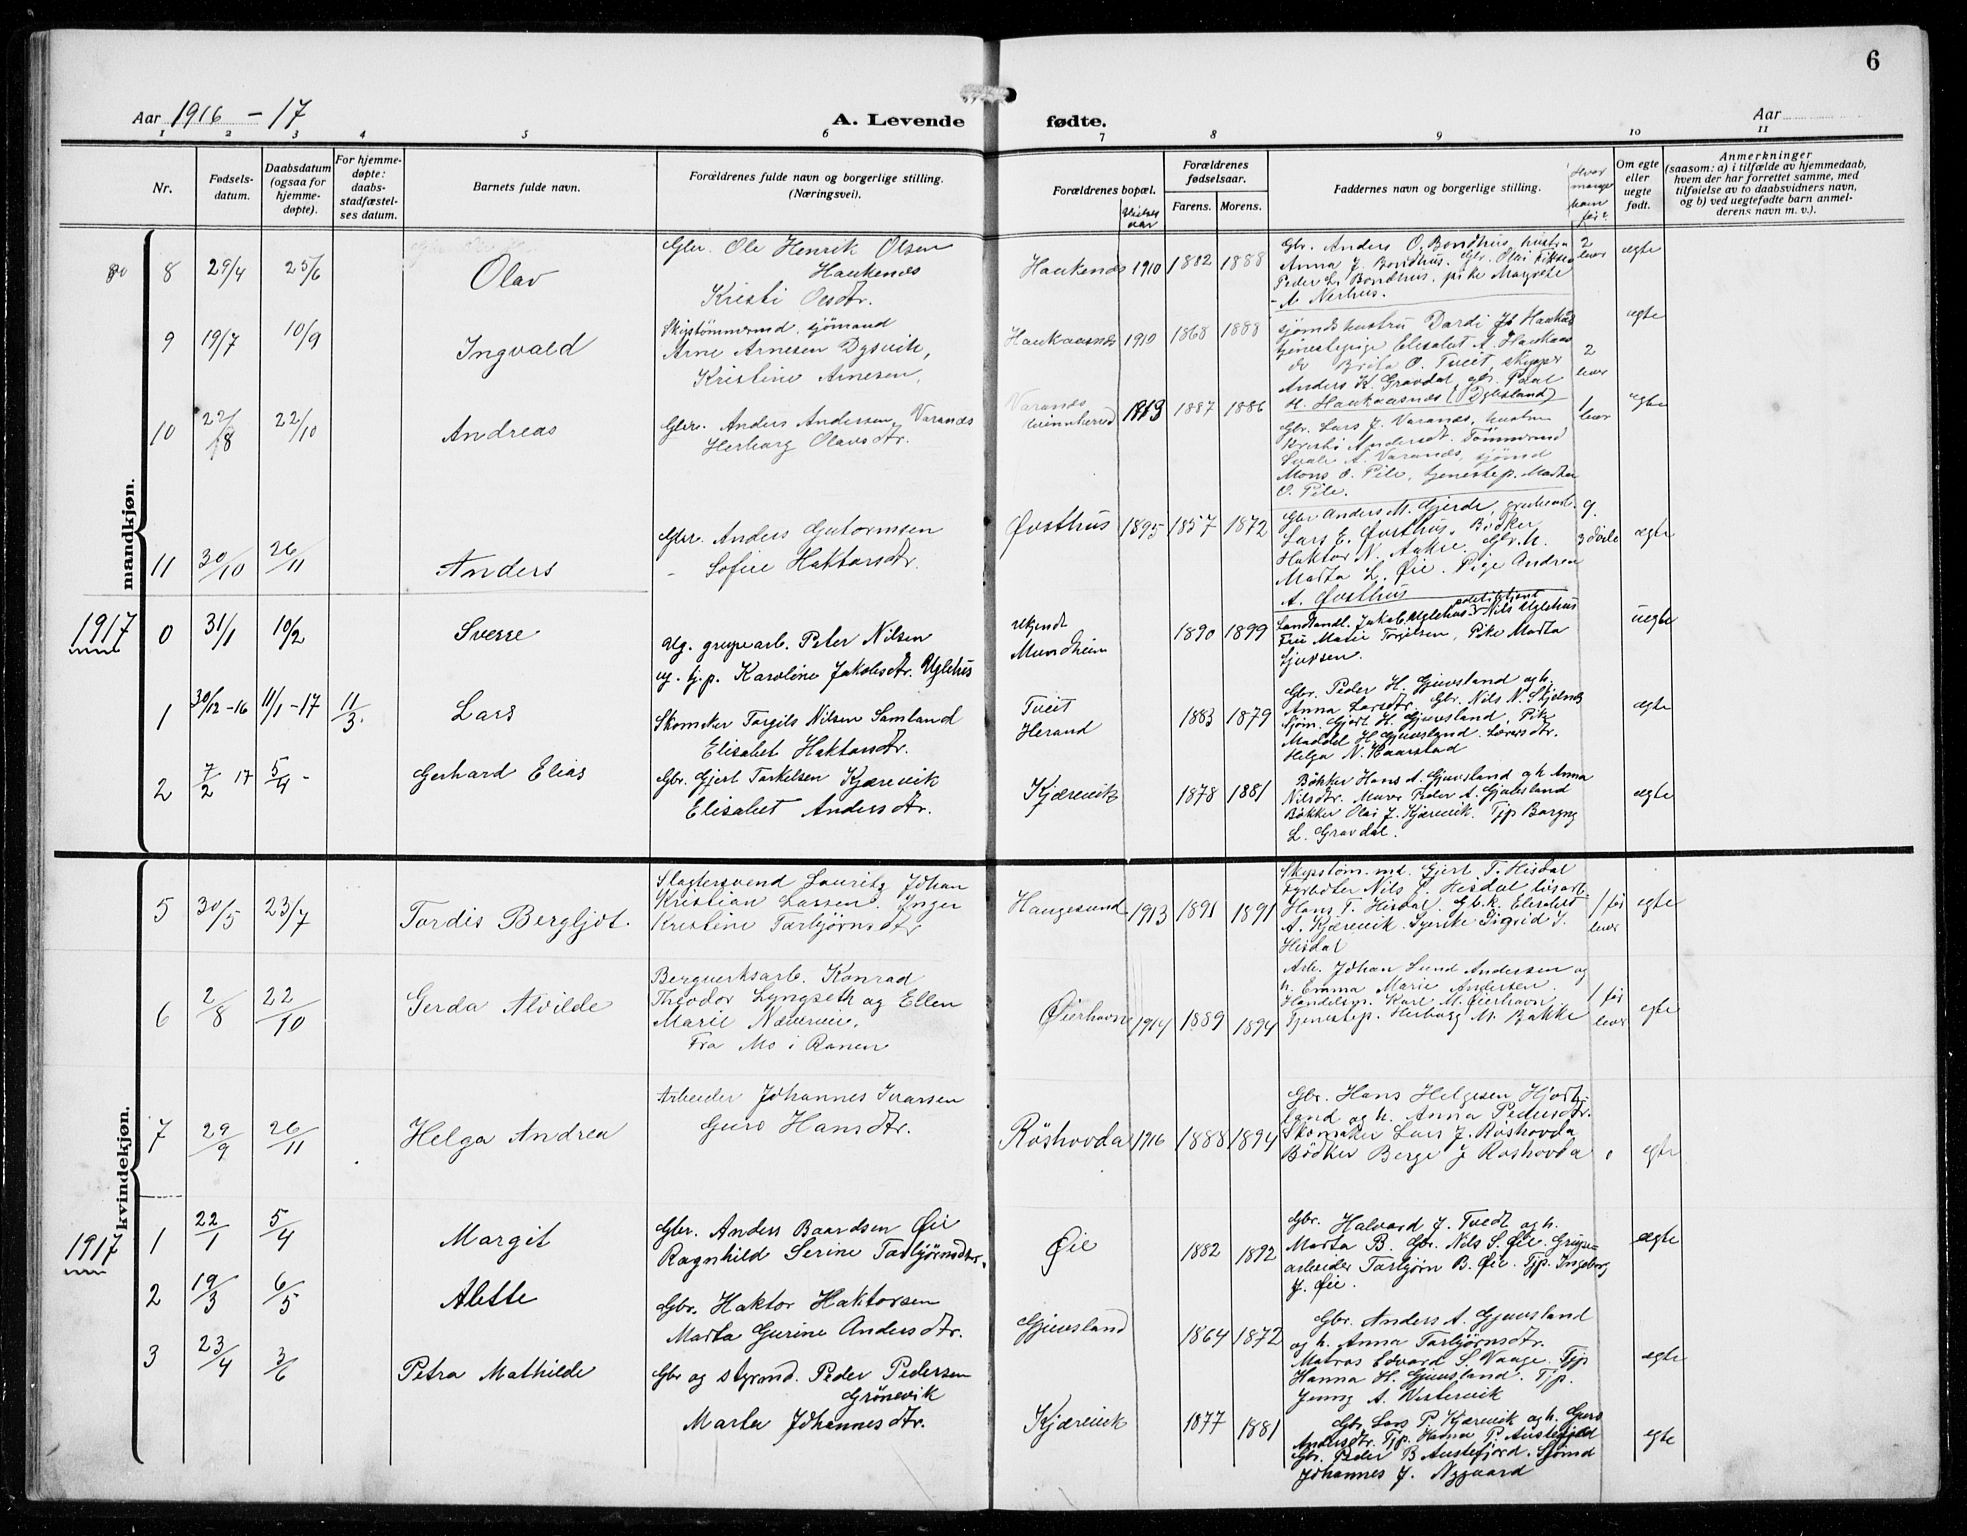 6
Aar 1916 - 17
A. Levende fødte.
Aar
1 2 3 4 5 6 7 8 9 10 11
Nr.
Fødsels-
datum.
Daabsdatum
(ogsaa for
hjemme-
døpte).
For hjemme-
døpte:
daabs-
stadfæstel-
ses datum.
Barnets fulde navn.
Forældrenes fulde navn og borgerlige stilling.
(Næringsvei).
Forældrenes bopæl.
Forældrenes
fødselsaar.
Farens. Morens.
Faddernes navn og borgerlige stilling.
Om egte
eller
uegte
født.
Anmerkninger
(saasom: a) i tilfælde av hjemmedaab,
hvem der har forrettet samme, med
tilføielse av to daabsvidners navn,
og b) ved uegtefødte barn anmel-
derens navn m. v.).
mandkjøn.
8 29/4 25/6 Olav
Gbr. Ole Henrik Olsen
Haukenæs
Kristi
Haukenæs 1910 1882 1888
Gbr. Anders O. Bondhus, hustru
Anna J. Bondhus. Gbr. Olai
Peder L. Bondhus, pike Margrete
A. Nerhus.
2
lever
egte
9 19/7 10/9 Ingvald
Skipstømmermd. sjömand
Arne Arnesen Dysvik,
Kristine Arnesen,
Haukaasnæs 1910 1868 1888
Anders K. Gravdal, gbr. Paal
H. Haukaasnæs
2
lever
egte
10 22/8 22/10 Andreas
Gbr. Anders Andersen Varanæs
Herborg Olavsdtr.
Varanæs
1913 1887 1886
Gbr. Lars J. Varanæs, hustru
A. Varanæs, sjømd
Mons O. Pile, tjenestep. Martha
O. Pile.
1
lever
egte
11 30/10 26/11 Anders
Gbr. Anders Gutormsen
- Sofie Haktorsdtr.
Øvsthus 1895 1857 1872
Gbr Anders M. Gjerde,
Lars E. Øvsthus. Bødker
Haktor N. Aakre. Gbr. h.
Marta L. Øie. Pige Andrea
A. Øvsthus
9.
3 døde
ægte
1917
0 31/1 10/2 Sverre
Ug. grupearb. Peter Nilsen
ug. tj. p. Karoline Jakobsdtr. Uglehus
ukjendt
Mundheim
1890 1899
Landhandl. Jakob Uglehus Nils Uglehus
Fru Marie Torgilsen, Pike Marta
Sjursen.
uegte
1 30/12-16 11/1-17 11/3. Lars
Skomaker Torgils Nilsen Samland
Elisabet Haktorsdtr.
Tveit
Herand
1883 1879
Gbr. Peder H. Gjuvsland og h.
Anna Larsdtr. Gbr. Nils N. Skjelnæs
Sjøm. Gjert H. Gjuvsland. Pike
Maddel H. Gjuvsland. Lærersdtr.
Helga N. Haarstad
ægte
2 7/2 17 5/4 - Gerhard Elias
Gbr. Gjert Torkelsen Kjærevik
Elisabet Andersdtr.
Kjærevik 1878 1881
Bøkker Hans A. Gjuvsland og h. Anna
Nilsdtr. Murer Peder A. Gjuvsland
Bøkker Olai J. Kjærevik. Tjp Borgny
L. Gravdal.
ægte
kvindekjøn.
5 30/5 23/7 Tordis Bergljot.
Slagtersvend Lauritz Johan
Kristian Larsen. Inger
Kristine Torbjørnsdtr
Haugesund 1913 1891 1891
Skipstøm.md. Gjert T. Hisdal
Fyrbøter Nils T. Hisdal
Hans T. Hisdal. Gbk. Elisabet
A. Kjærevik. Syerske Sigrid T.
Hisdal
1 før
lever
egte
6 2/8 22/10 Gerda Alvilde
Bergverksarb. Konrad
Theodor Lyngseth og Ellen
Marie
Fra Mo i Ranen
Øierhavn 1914 1889 1894
Arb. Johan Lund Andersen og
h. Emma Marie Andersen.
Handelsm. Karl M. Øierhavn.
Tjenestep. Herborg M. Bakke
1 før
lever
egte
7 29/9 26/11 Helga Andrea
Arbeider Johannes Ivarsen
Guro Hansdtr.
Røshovda 1916 1888 1894
Gbr. Hans Helgesen Hjort-
land og h. Anna Pedersdtr.
Skomaker Lars J. Røshovda
Bödker Berge J Røshovda
0
egte
1917
1 22/1 5/4 Margit
Gbr. Anders Baardsen Øie
Ragnhild Serine Torbjørnsdtr.
Øie 1882 1892
Gbr. Halvard J. Tvedt og h.
Marta B. Gbr. Nils S. Øie. Grupe-
arbeider Torbjørn B. Øie. Tjp. Ingeborg
J. Øie.
ægte
2 19/3 6/5 Alette
Gbr. Haktor Haktorsen
Marta Gurine Andersdtr.
Gjuvsland 1864 1872
Gbr. Anders A. Gjuvsland
og h. Anna Torbjørnsdtr.
Matros Edvard S. Vaage. Tjp
Hanna H. Gjuvsland. Tjp.
Jenny A. Westervik
ægte
3 23/4 3/6 Petra Mathilde
Gbr og styrmd. Peder Pedersen
Grønevik
Marta Johannesdtr.
Kjærevik 1877 1881
Gbr. Lars P. Kjærevik og h. Guro
Andersdtr. Tjp. Hanna P. Austefjord
Gbr. Peder B Austefjord. Sjømd
Johannes J. Nygaard
egte